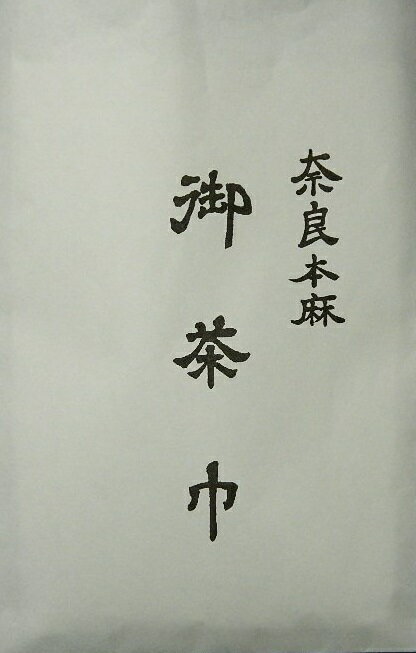 奈良本麻
御茶巾